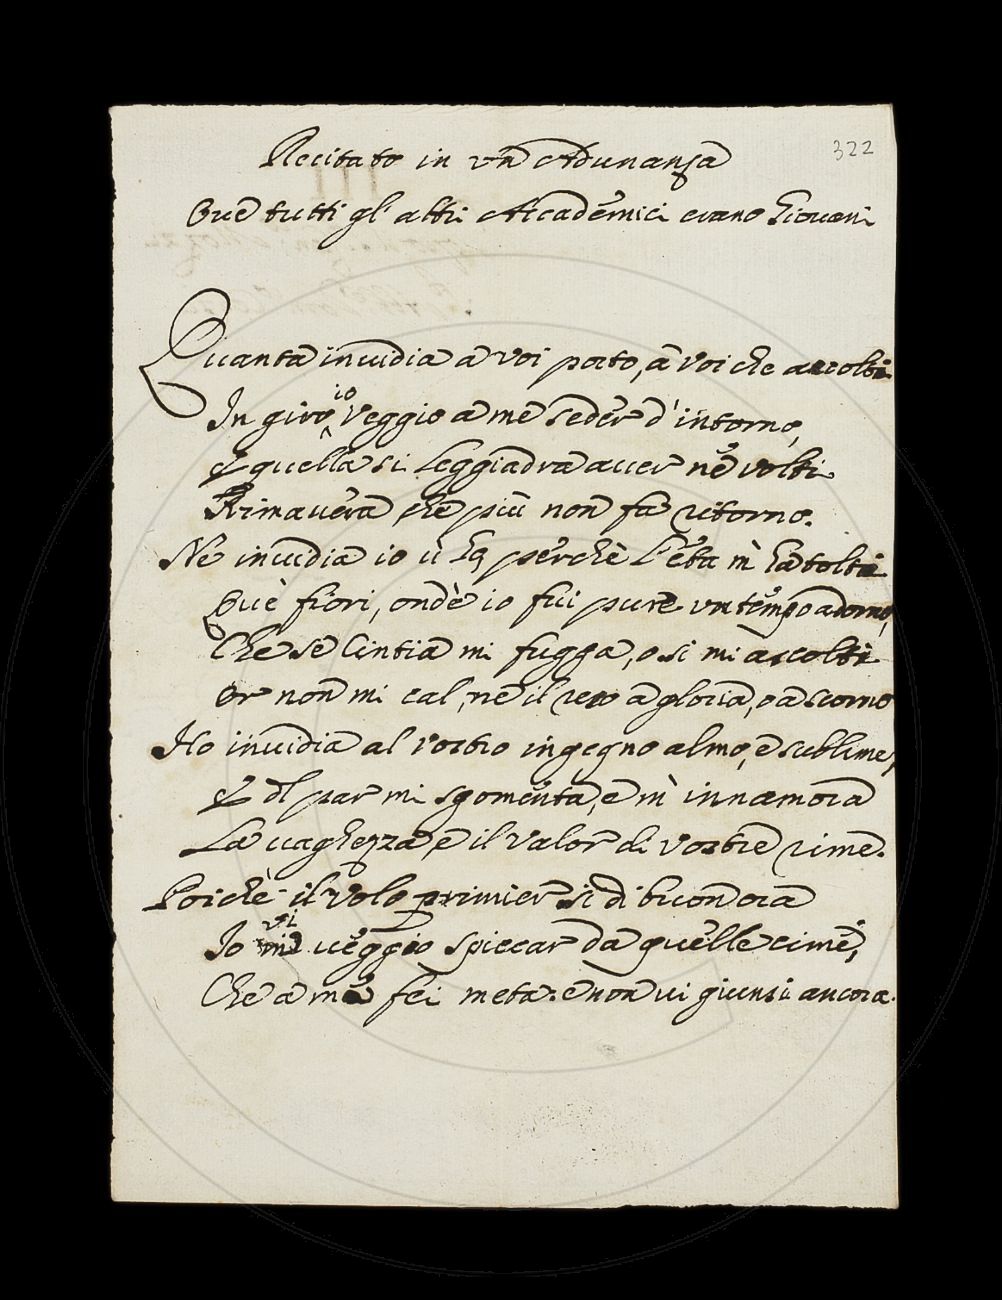 322
Recitato in vn Adunanza
Ove tutti gl' altri Accademici erano Giovani
Quanta invidia a voi porto, a voi che ascolti
In giro io veggio a me seder d'intorno,
E quella si leggiadra aver ne volti
Primavera, che più non fa ritorno.
Ne invidia io v' ho perchè l'età m' ha tolti
Que fiori, onde io fui pure vn tempo adorno,
Che se Cintia mi fugga, o si mi ascolti
Or non mi cal, ne il reco a gloria, o a scorno
Ho invidia al vostro ingegno almo, e sublime,
E di par mi sgomenta, e m' innamora
La vaghezza, e il valor di vostre rime.
Poichè il volo primier si di buon ora
Io vi veggio spiccar da quelle cime,
Che a me fei meta. e non vi giunsi ancora.